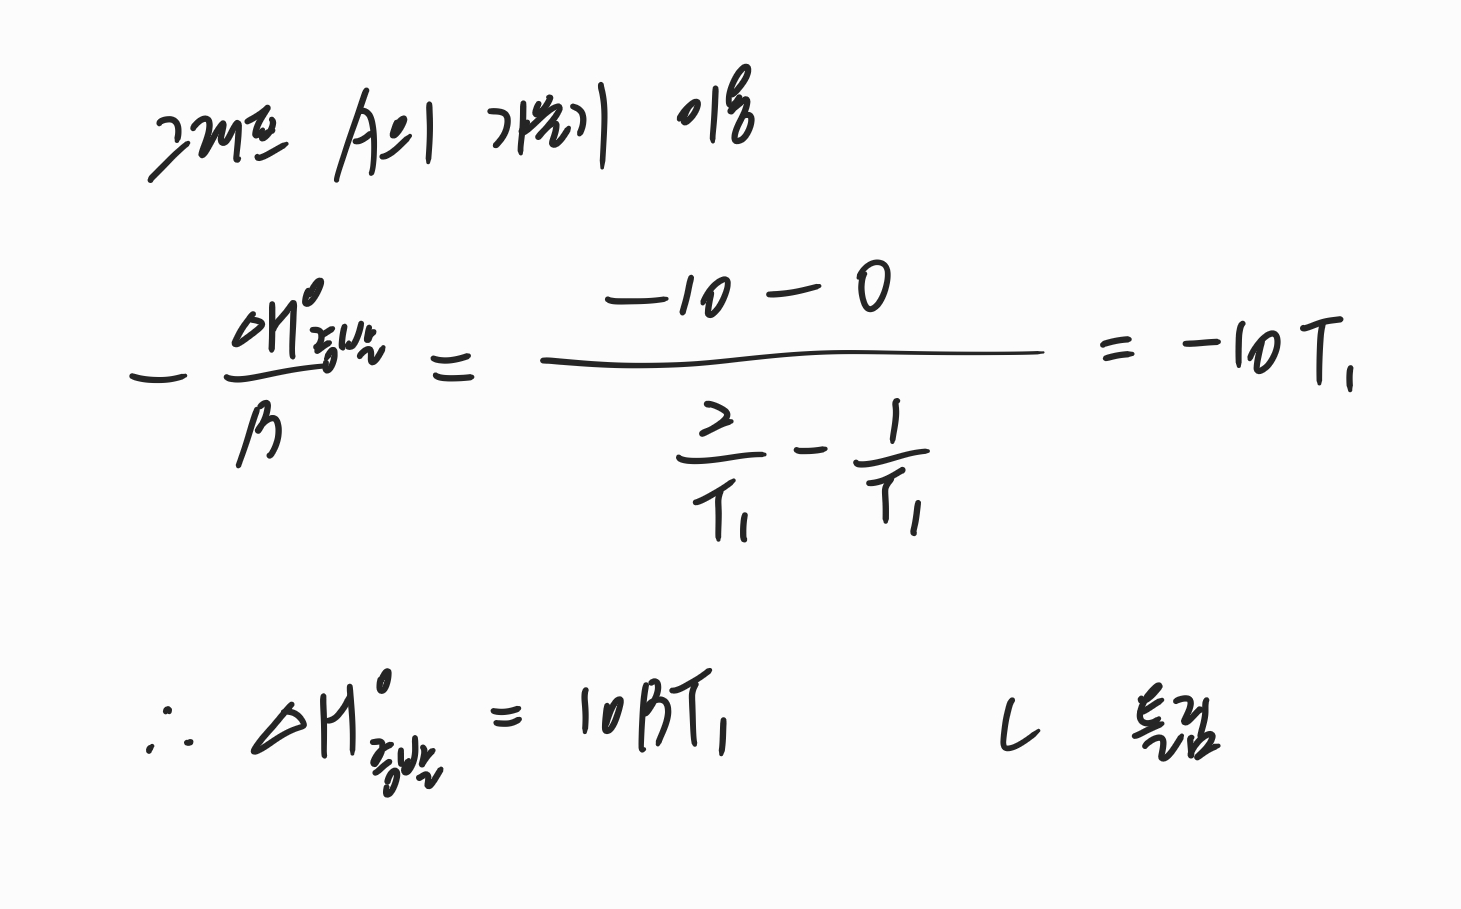 그래프 A의 기울기 이용
- ΔH°증발 / R = (-10 - 0) / (2/T₁ - 1/T₁) = -10T₁
∴ ΔH°증발 = 10RT₁ ㄴ 틀림